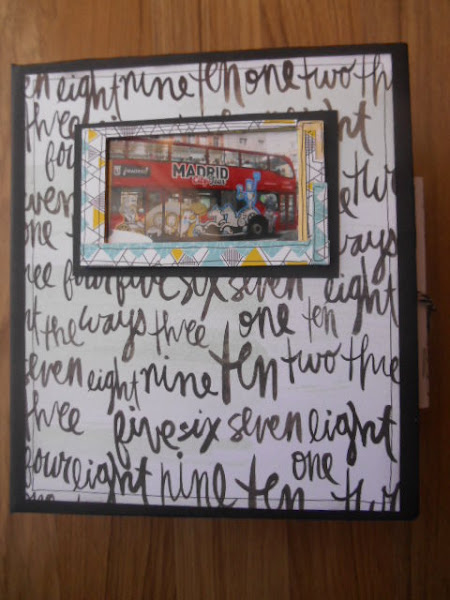 en eight nine ten one two thr
three
four
MADRID
City Tour
seven
ways
ree four five six seven eight
the ways three one ten
seven eight nine ten two three
three five six seven eight
four eight nine ten one two